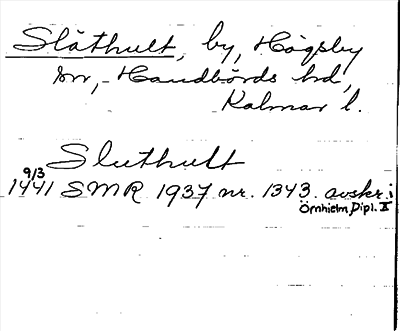 Slåthult, by, Högsby
sn, Handbörds hd,
Kalmar l.
Sluthult
9/3
1441 SMR 1937 nr. 1343. avskr. i
Örnhielm Dipl. II